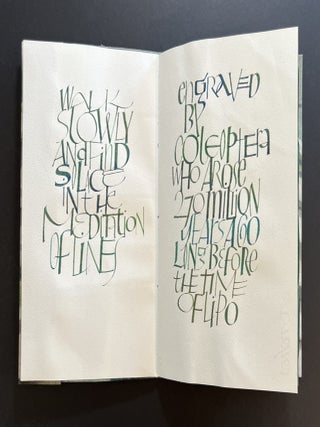 WALK
SLOWLY
AND FIND
SOLICE
IN THE
MEDITATION
OF LINES
ENGRAVED
BY
COLEOPTERA
WHO AROSE
270 MILLION
YEARS AGO
LONG BEFORE
THE TIME
OF